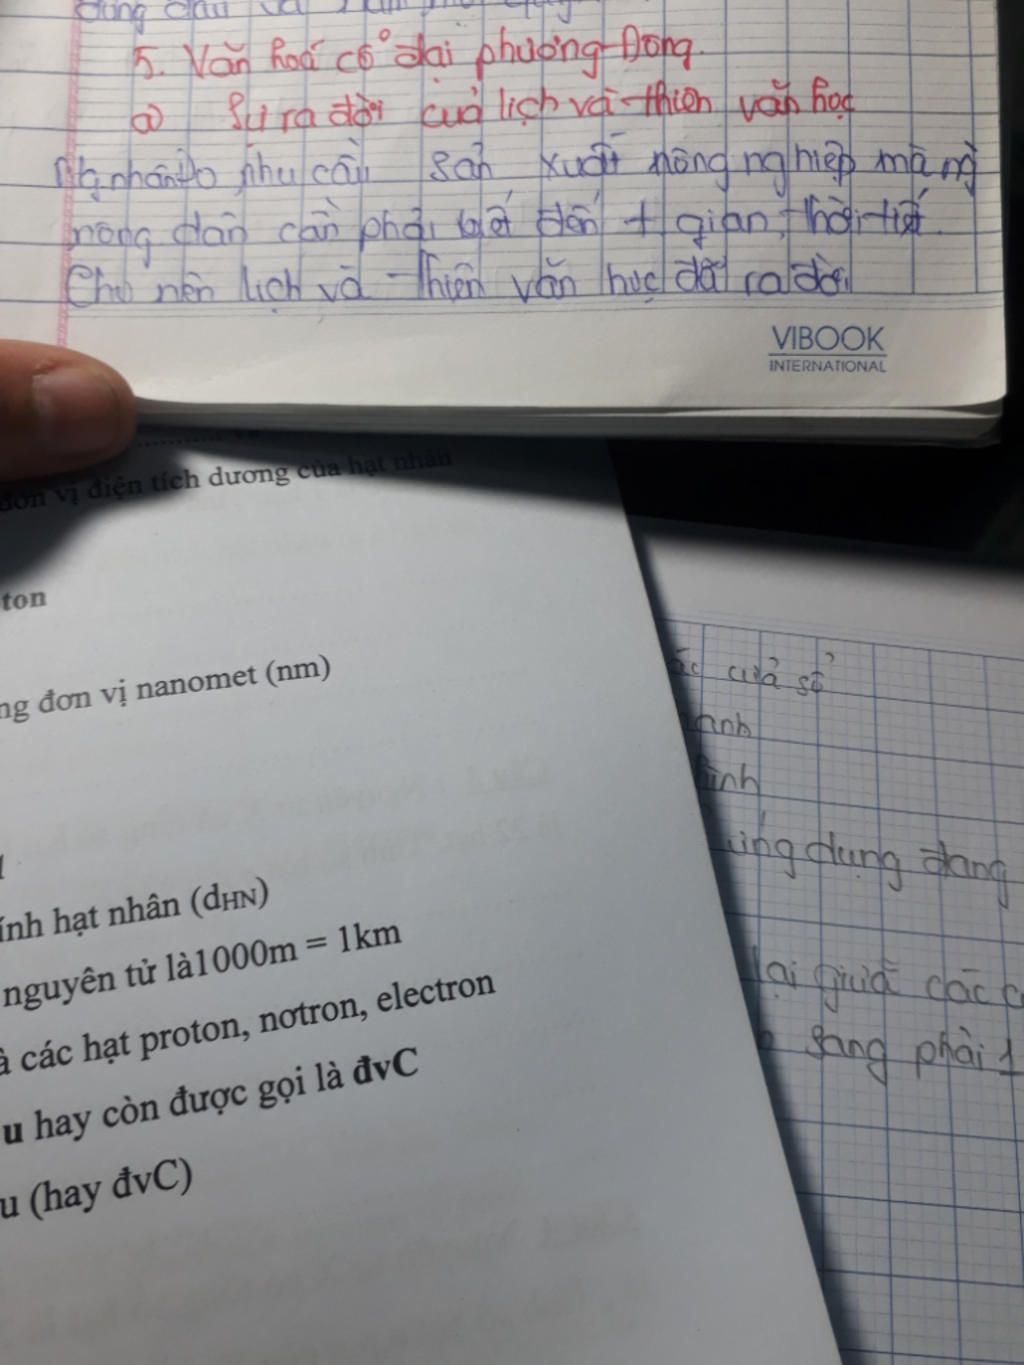 5. Văn hoá cổ đại phương Đông.
a) Sự ra đời của lịch và thiên văn học
Do nhu cầu sản xuất nông nghiệp mà
nông dân cần phải biết đến t gian, thời tiết.
Cho nên lịch và thiên văn học đã ra đời
VIBOOK
INTERNATIONAL
đơn vị điện tích dương của hạt nhân
ton
ng đơn vị nanomet (nm)
ính hạt nhân (dHN)
nguyên tử là1000m = 1km
à các hạt proton, nơtron, electron
u hay còn được gọi là đvC
u (hay đvC)
ác cửa sổ
hình
ứng dụng đang
lại giữa các c
sang phải 1